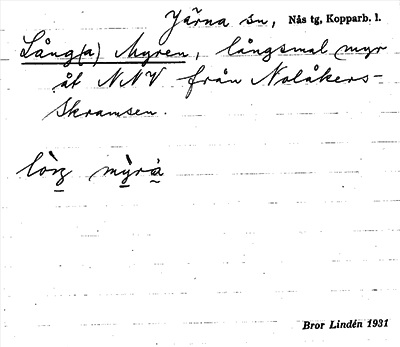 Järna sn, Nås tg, Kopparb. l.
Lång(a) Myren, långsmal myr
åt NNV från Nolåkers-
Skramsen.
lòŋ mỳrå
Bror Lindén 1931